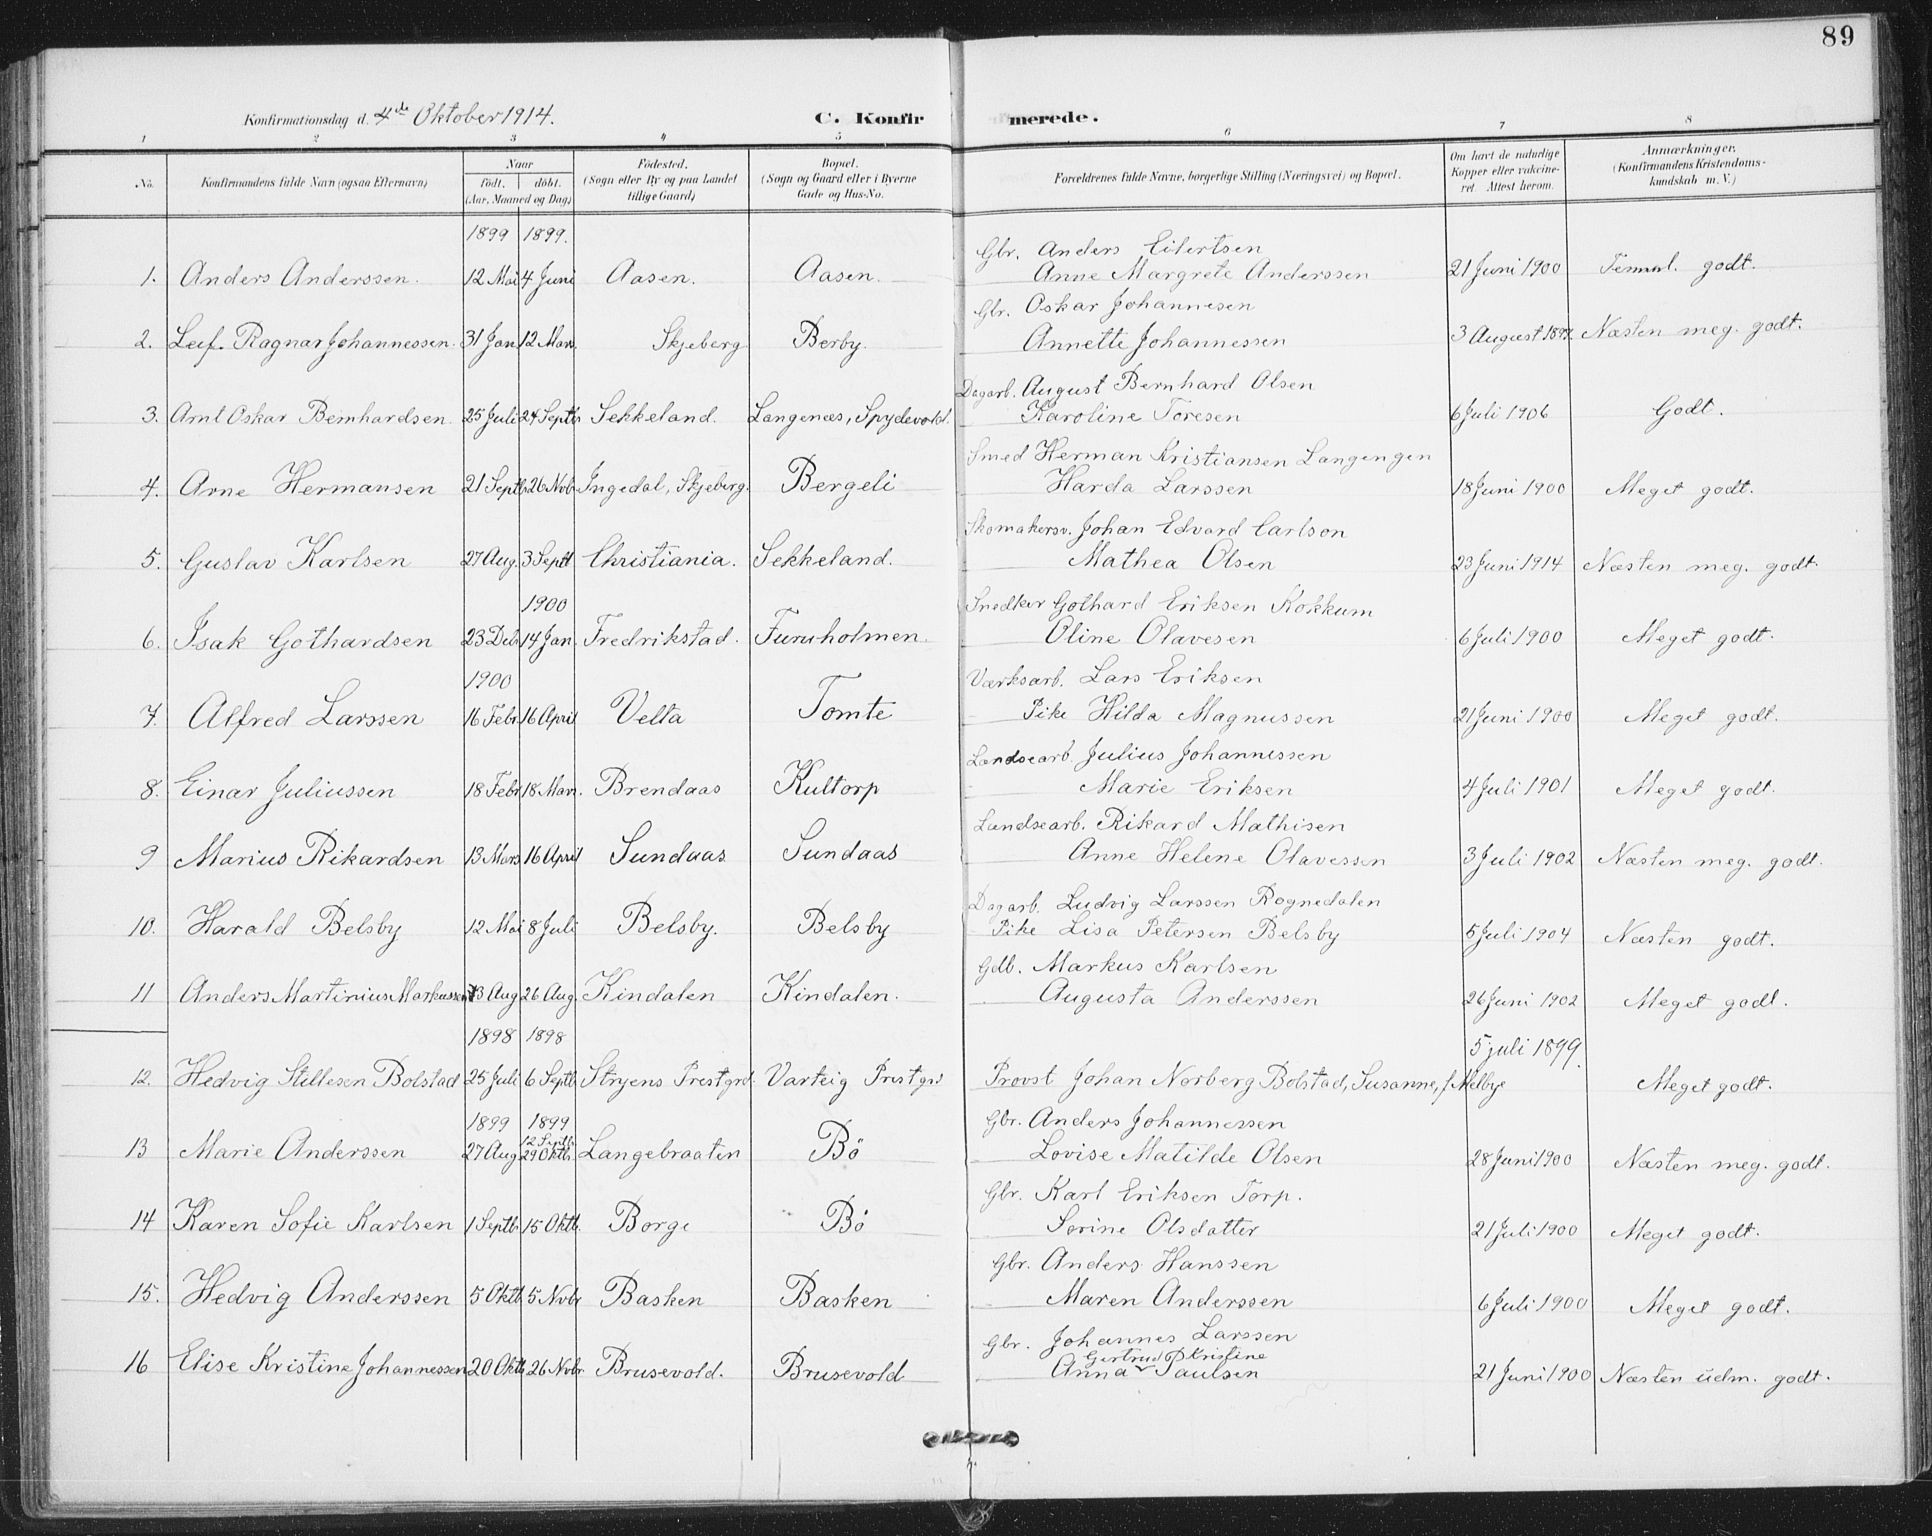 89
Konfirmationsdag d. 4de Oktober 1914. C. Konfirmerede.
1 2 3 4 5 6 7 8
No. Konfirmandens fulde Navn (ogsaa Efternavn) Naar født. døbt. (Aar, Maaned og Dag) Fødested. (Sogn eller By og paa Landet tillige Gaard) Bopæl. (Sogn og Gaard eller i Byerne Gade og Hus-No. Forældrenes fulde Navne, borgerlige Stilling (Næringsvei) og Bopæl. Om havt de naturlige Kopper eller vakcineret. Attest herom. Anmærkninger. (Konfirmandens Kristendomskundskab m. V.)
1899 1899.
Gbr. Anders Eilertsen
1. Anders Anderssen. 12 Mai 4 Juni Aasen. Aasen. Anne Margrete Anderssen 21 Juni 1900 Temml. godt.
Gbr. Oskar Johannesen
2. Leif Ragnar Johannessen. 31 Jan. 12 Mars. Skjeberg Berby. Annette Johannessen 3 August 1899. Næsten meg. godt.
Dagarb. August Bernhard Olsen
3. Arnt Oskar Bernhardsen. 25 Juli 24 Septb. Sekkeland. Langenæs, Spydevold. Karoline Toresen 6 Juli 1906 Godt.
Smed Herman Kristiansen Langengen
4. Arne Hermansen 21 Septb. 26 Nvb. Ingedal, Skjeberg. Bergeli Harda Larssen 18 Juni 1900 Meget godt.
Skomakersv. Johan Edvard Carlson
5. Gustav Karlsen 27 Aug. 3 Septb Christiania. Sekkeland. Mathea Olsen 23 Juni 1914 Næsten meg. godt.
1900
Snedker Gothard Eriksen Kokkum
6. Isak Gothardsen 23 Deb. 14 Jan. Fredrikstad. Furuholmen. Oline Olavesen 6 Juli 1900 Meget godt.
1900
Værksarb. Lars Eriksen
7. Alfred Larssen 16 Febr. 16 April Velta Tomte Pike Hilda Magnussen 21 Juni 1900 Meget godt.
Landsearb. Julius Johannessen
8. Einar Juliussen 18 Febr. 18 Mars. Brendaas Kultorp Marie Eriksen 4 Juli 1901 Meget godt.
Landsearb. Rikard Mathisen
9 Marius Rikardsen 13 Mars 16 April Sundaas Sundaas Anne Helene Olavessen 3 Juli 1902 Næsten meg. godt.
Dagarb. Ludvig Larssen Rognedalen
10. Harald Belsby 12 Mai 8 Juli Belsby. Belsby Pike Lisa Petersen Belsby 5 Juli 1904 Næsten godt.
Gdb. Markus Karlsen
11 Anders Martinius Markussen 13 Aug 26 Aug. Kindalen Kindalen. Augusta Anderssen 26 Juni 1902 Meget godt.
1898 1898
5 juli 1899.
12. Hedvig Stillesen Bolstad 25 Juli 6 Septb. Stryens Prestgrd. Varteig Prestgrd Provst Johan Norberg Bolstad, Susanne, f. Melbye Meget godt.
1899 1899
Gbr. Anders Johannessen
12 Septb.
13 Marie Anderssen 27 Aug 29 Oktb. Langebraaten Bö Lovise Matilde Olsen 28 Juni 1900 Næsten meg. godt.
Gbr. Karl Eriksen Torp.
14 Karen Sofie Karlsen 1 Septb. 15 Oktb. Borge Bö Sorine Olsdatter 21 Juli 1900 Meget godt.
Gbr. Anders Hanssen
15. Hedvig Anderssen 5 Oktb. 5 Nvbr Basken Basken Maren Anderssen 6 Juli 1900 Meget godt.
Gbr. Johannes Larssen
Gertrud Kristine
16 Elise Kristine Johannessen 20 Oktb 26 Nvbr Brusevold. Brusevold Anna Paulsen 21 Juni 1900 Næsten udm. godt.